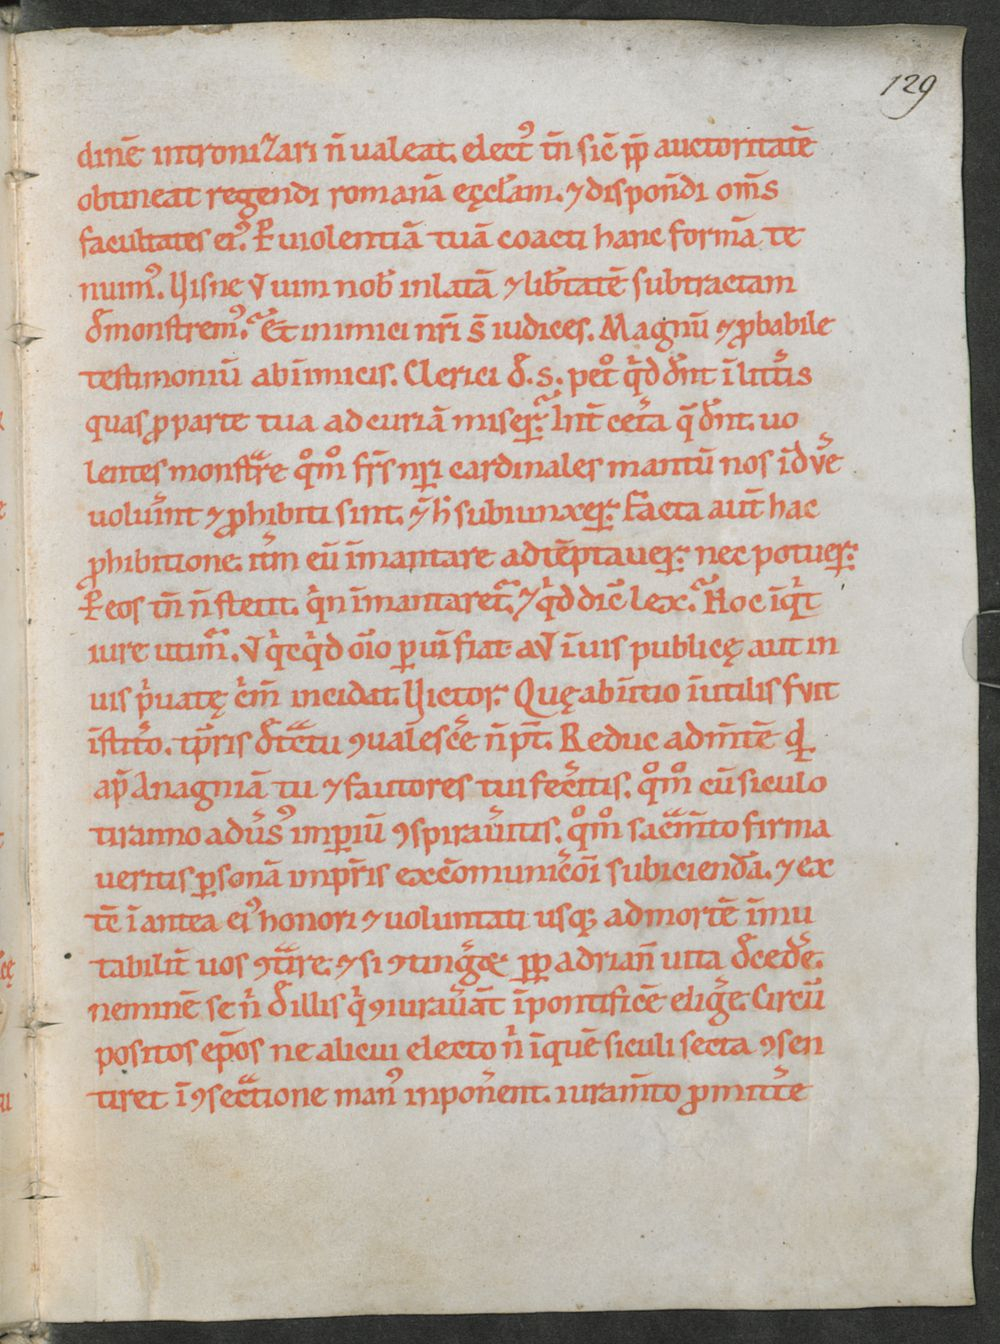 129
dinē introniZari n̄ ualeat. elect᾽ tn̄ sic̄ pp̄ auctoritatē
obtineat regendi romanā ęcclām. ⁊ disponēdi om̄s
facultates ei᾽. P̄ uiolentiā tuā coacti hanc formā te
nuim᾽. Hisne V uim nob̄ inlatā ⁊ lib̄tatē subtractam
d̄monstrem᾽. Et inimici nr̄i s̄ iudices. Magnū ⁊ ꝓbabile
testimoniū ab īimicis. Clerici d̄. s. pet̊ qͥd dn̄t ī litt̄is
quas ꝓ parte tua ad curiā miseꝝ. hn̄t cet̄a q̄ dn̄t. uo
lentes monstrͣre qͦmͦ fr̄s nr̄i cardinales mantū nos īdu̅e
uolūint ⁊ ꝓhibiti sint. ẏ h̄ subiunxeꝝ. Facta aut̄ hac
ꝓhibitione. itm̄ eū īmantare ad tēptaueꝝ. nec potueꝝ.
P̄ eos tn̄ n̄ stetit. qͥn īmantaret᷑. ⁊ qͥd dic̄ lex. Hoc iqͥt
iure utim᷑. V qͥcqͥd oīo p̱ uī fiat aV ī uis publicę aut in
uis pͥuatę cͥm̄ incidat. Hictor. Quę ab ītio īutilis fvit
īstit̄o. tp̄ris d̄tͣctu ꝯualesc̄e n̄ pt̄. Reduc ad m̄tē qd̄
ap̄ Anagniā tu ⁊ fautores tui fec̄itis. qͦmͦ cū siculo
tiranno adūs᾽ imp̱iū ꝯspirau̅itis. qͦmͦ sacͣm̄to firma
ueritis p̱sonā imp̱r̄is excōmunic̄oī subiciendā. ⁊ ex
tē ī antea ei᾽ honori ⁊ uoluntati usqꝫ ad mortē īmu
tabilit̄ uos ꝯtͣire. ⁊ si ꝯting̅et pp̱ adrian̄ uita d̄ced̅e.
neminē se n̄ d̄ illis qͥ ꝯiurau̅āt ī pontificē elig̅e. Circū
positos ep̄os ne alicui electo n̄ īquē siculi secta ꝯsen
tiret ī ꝯsecͣtione man᾽ inpon̅ent. iuram̄to ꝓmitt̅e